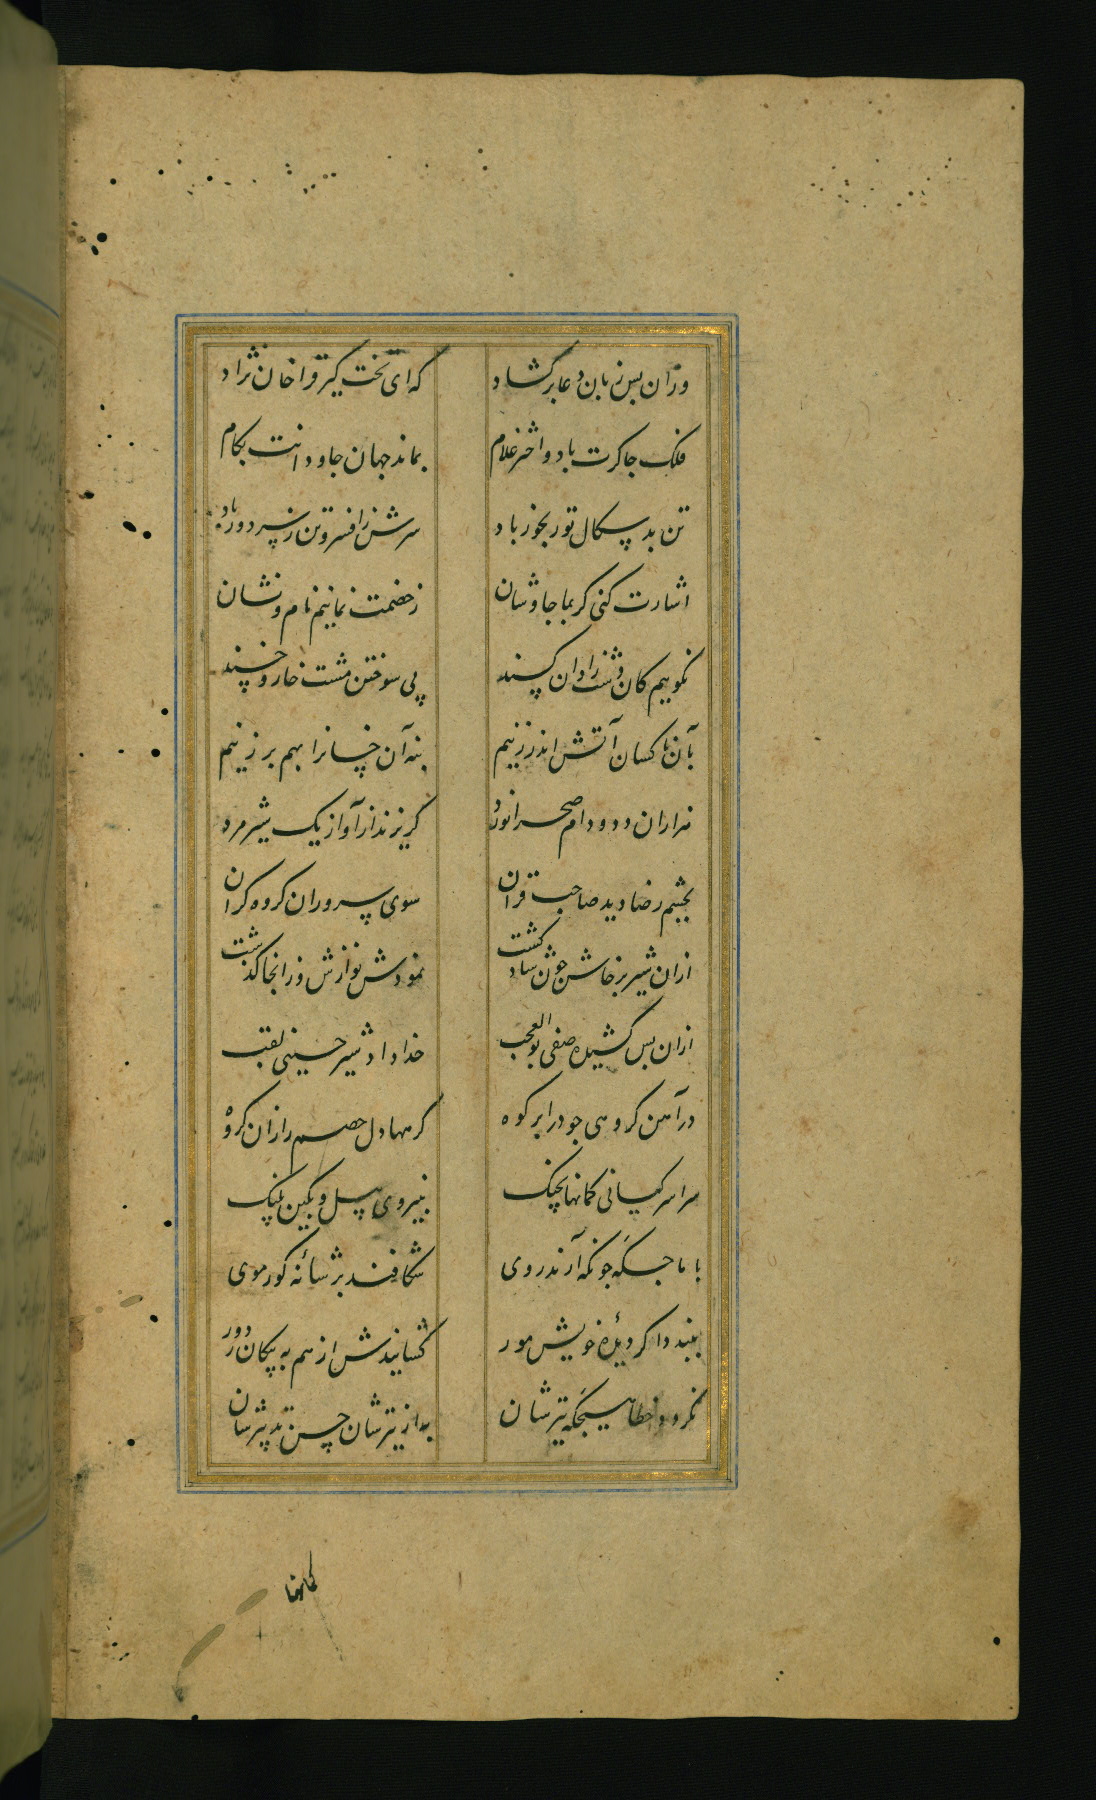 وزان پس زبان دعا برکشاد که ای تخت گیر قراخان نژاد
فلک چاکرت باد و اختر غلام بماند جهان جاودانت بکام
تن بد سکال تو رنجور باد سرش زافسر و تن ز سر دور باد
اشارت کنی کر بما جاوشان ز خصمت نمانیم نام و نشان
پی سوختن مشت خار و خسند
بآن ناکسان آتش اندر زنیم بنه آن خسانرا بهم بر زنیم
هزاران دد و دام صحرانورد کریزند از آواز یک شیر مرد
بچشم رضا دید صاحب قران سوی سروران کروه کران
ازان شیر پرخاش جون شاد کشت نمودش نوازش وزانجا کذشت
ازان پس کشیده صفی بوالعجب خداداد شیر حسینی لقب
در آهن کروهی جو در ابر کوه کرمها دل خصم رازان کروه
سراسر کیانی کمانها بچنک بنیروی پیل و بکین پلنک
بآماجکه جونکه آرند روی شکافند بر شانهٔ کور موی
ببیند اکر دیدهٔ خویش مور کشایندش از هم به پیکان ز دور
نکردد خطا هیجکه تیرشان به از تیرشان حسن تدبیرشان
کمانها